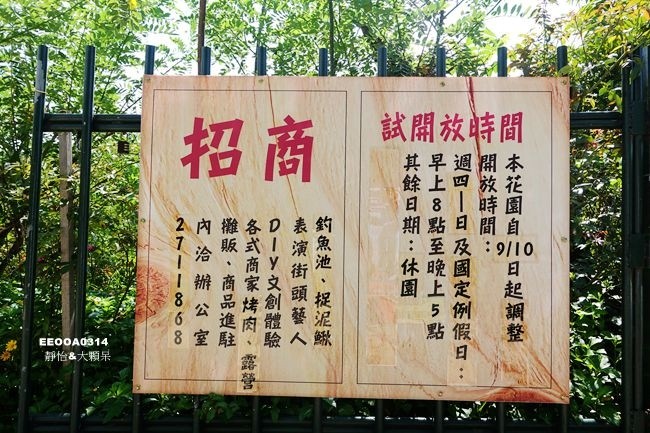 試開放時間
本花園自9/10日起調整
開放時間：
週四—日及國定例假日：
早上8點至晚上5點
其餘日期：休園
招商
釣魚池、捉泥鰍
表演街頭藝人
DIY文創體驗
各式商家烤肉、露營
攤販、商品進駐
內洽辦公室
2711868
EEOOA0314
靜怡&大顆呆